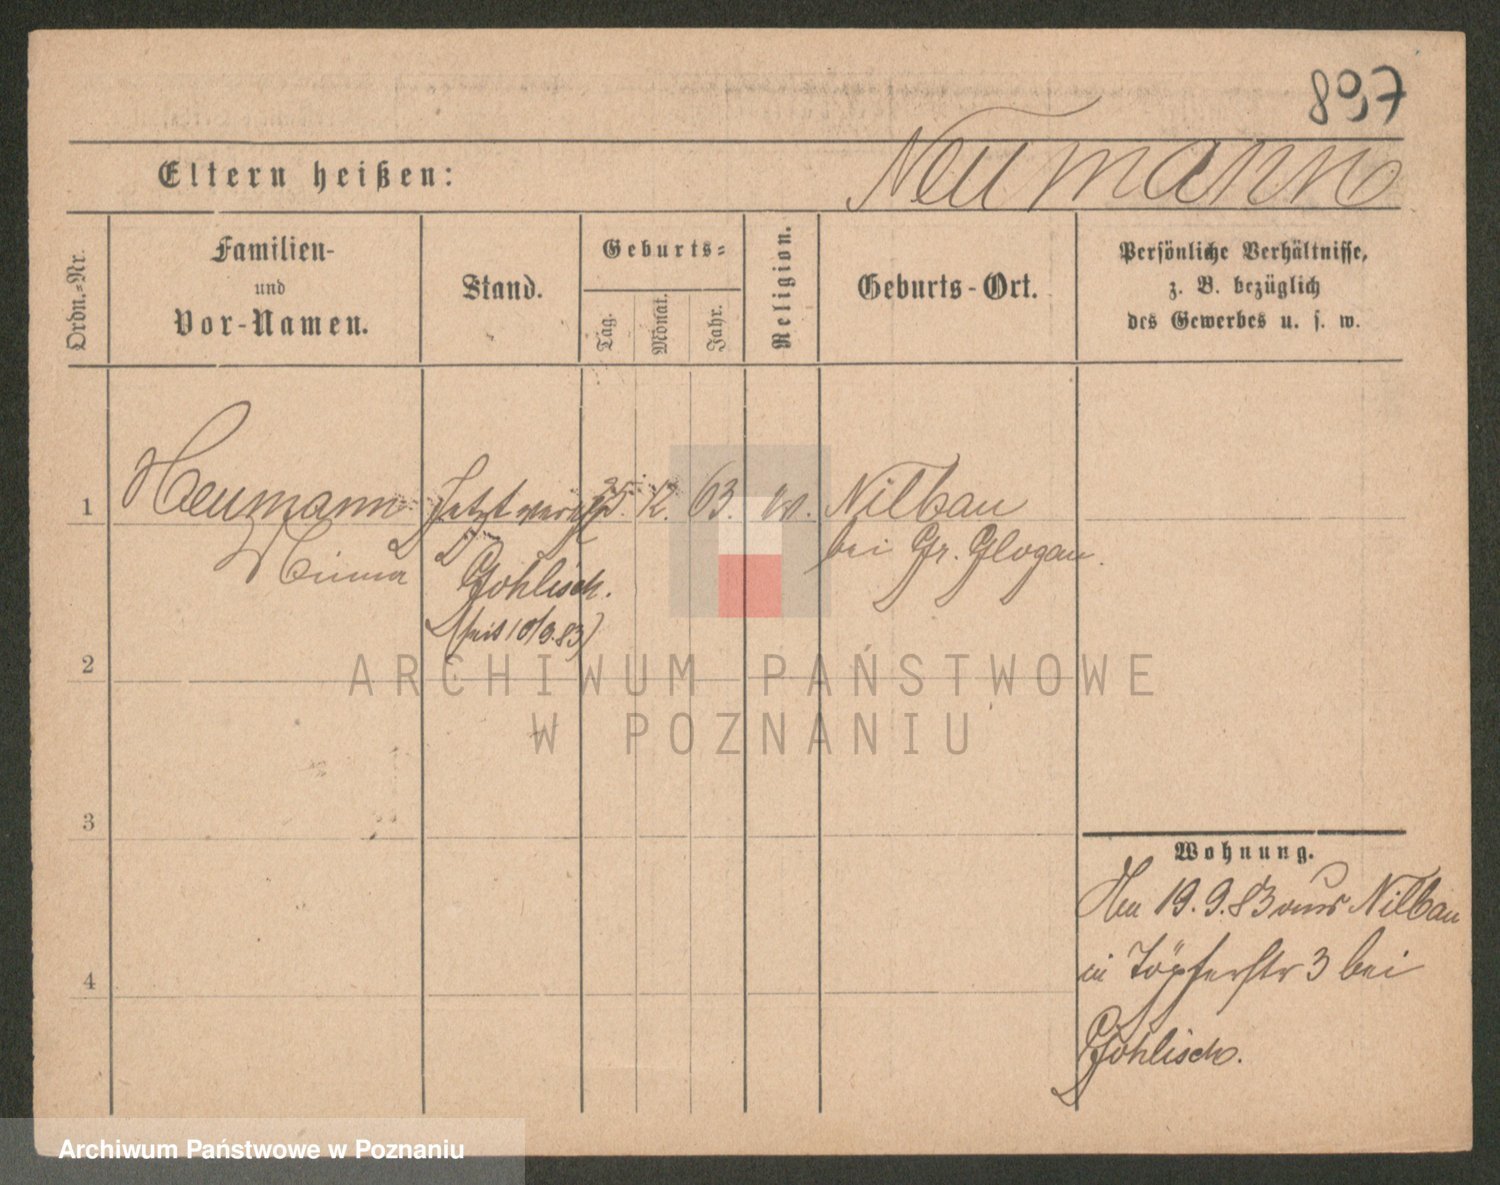 897
Neumann
Eltern heißen:
Ordn.-Nr.
Familien-
und
Vor-Namen.
Stand.
Geburts-
Tag.
Monat.
Jahr.
Religion.
Geburts-Ort.
Persönliche Verhältnisse,
z. B. bezüglich
des Gewerbes u. s. w.
1
Neumann
Minna
Jetzt
Gohlisch.
(seit 10/9.83)
25. 12. 63.
Nilbau
bei Gr. Glogau.
2
3
4
Wohnung.
19.9.83 aus Nilbau
in Töpferstr 3 bei
Gohlisch.
ARCHIWUM PAŃSTWOWE
W POZNANIU
Archiwum Państwowe w Poznaniu